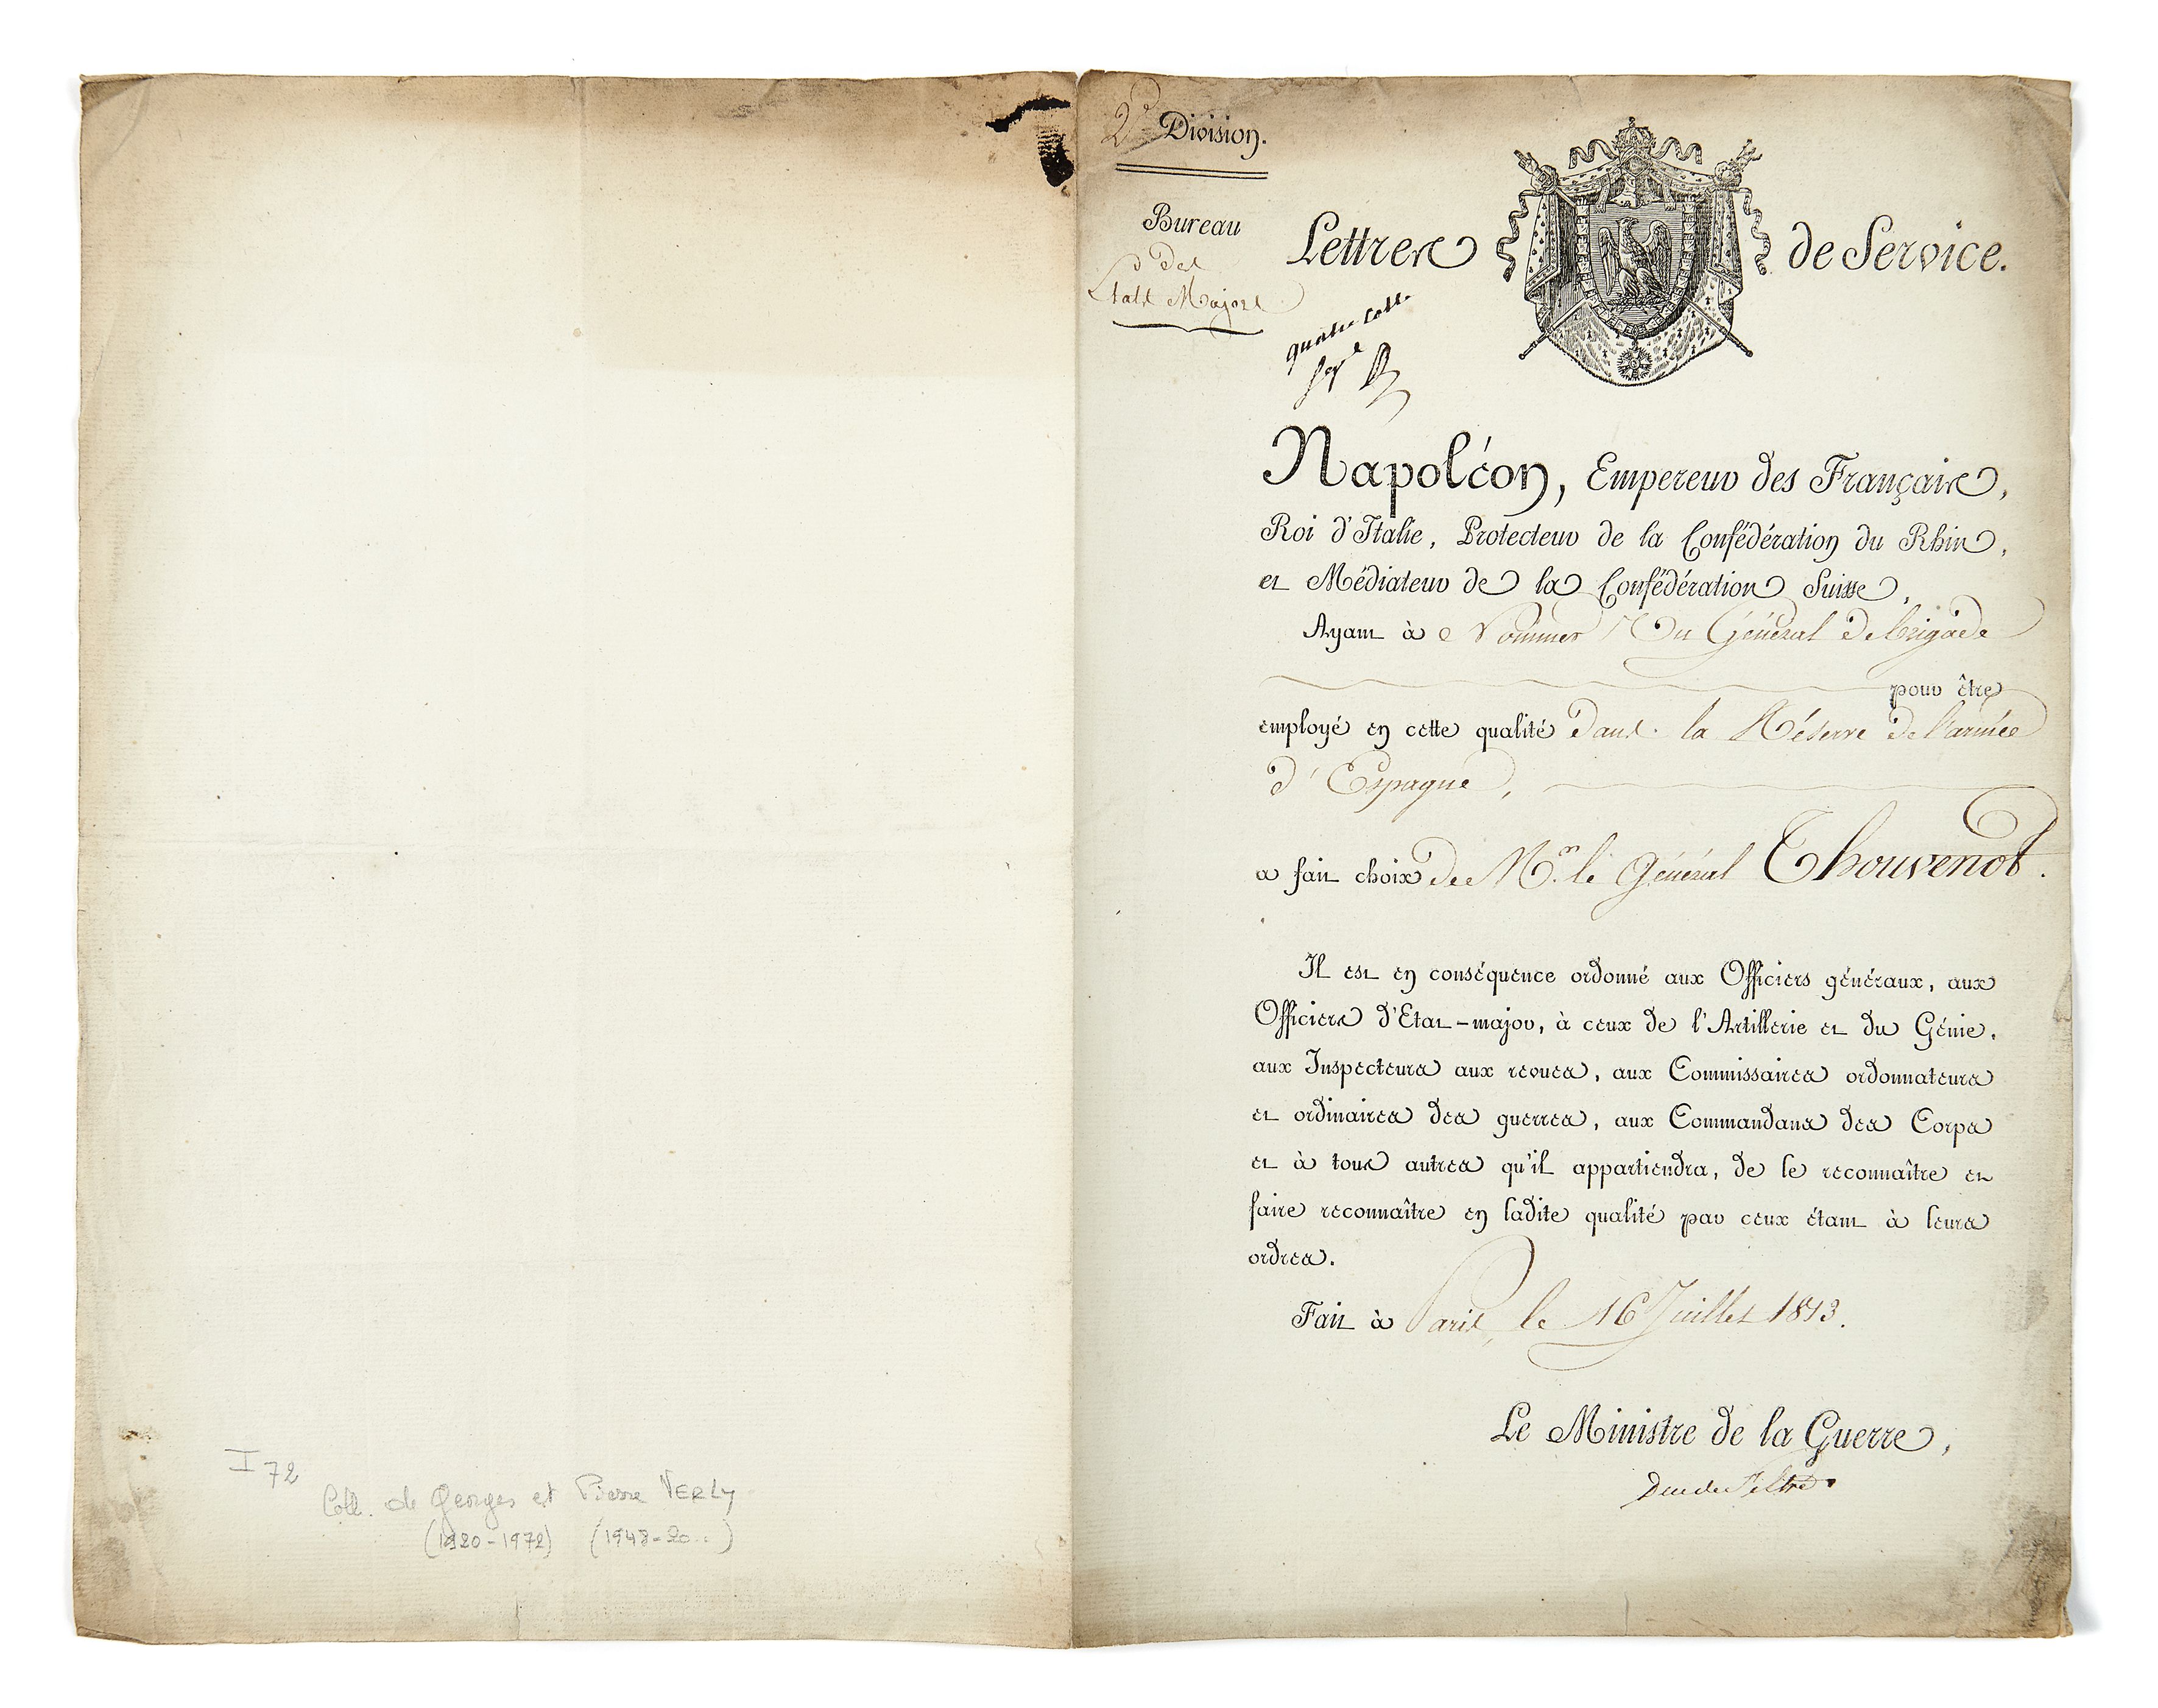 2e Division.
Bureau
des
Etats Majors
Lettres de Service.
Napoléon, Empereur des Français,
Roi d'Italie, Protecteur de la Confédération du Rhin,
et Médiateur de la Confédération Suisse,
Ayant à Nommer Un Général de brigade
pour être
employé en cette qualité dans la Réserve de l'armée
d'Espagne,
a fait choix de Mr. le Général Thouvenot.
Il est en conséquence ordonné aux Officiers généraux, aux
Officiers d'Etat-major, à ceux de l'Artillerie et du Génie,
aux Inspecteurs aux revues, aux Commissaires ordonnateurs
et ordinaires des guerres, aux Commandans des Corps
et à tous autres qu'il appartiendra, de le reconnaître et
faire reconnaître en ladite qualité par ceux étant à leurs
ordres.
Fait à Paris, le 16 Juillet 1813.
Le Ministre de la Guerre,
Duc de Feltre
I 72
Coll. de Georges et Pierre VERLY
(1920-1972) (1948-20..)